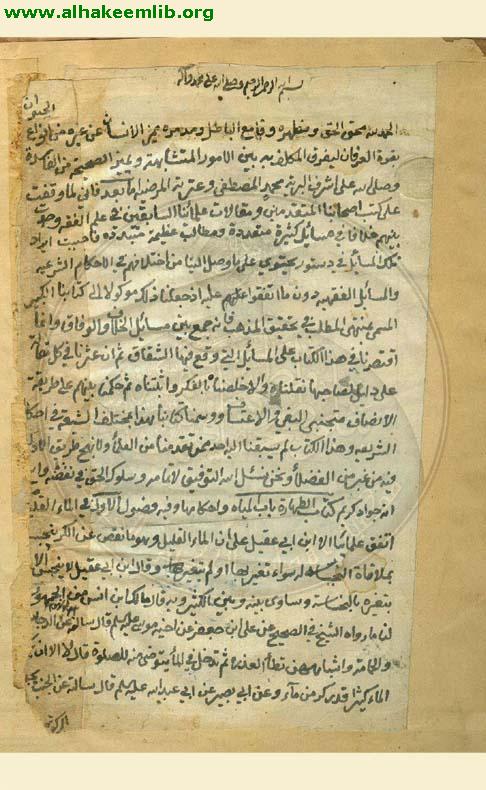 www.alhakeemlib.org
بسم الله الرحمن الرحيم وصلى الله على محمد وآله
الحمد لله محق الحق ومظهره وقامع الباطل ومدمره مميز الانسان عن غيره من انواع
الحيوان
بقوة العرفان ليفرق المكلف به بين الامور المتشابهة ويميز الصحيحة من الفاسدة
وصلى الله على اشرف البرية محمد المصطفى وعترته المرضية اما بعد فاني لما وقفت
على كتب اصحابنا المتقدمين ومقالات علمائنا السابقين في علم الفقه وجدت
بينهم خلافا في مسائل كثيرة متعددة ومطالب عظيمة متبددة فاحببت ايراد
تلك المسائل في دستور يحتوي على ما وصل الينا من اختلافهم في الاحكام الشرعيه
والمسائل الفقهيه دون ما اتفقوا عليه اذ جعلنا ذلك موكولا الى كتابنا الكبير
المسمى بمنتهى المطلب في تحقيق المذهب فانه جمع بين مسائل الخلاف والوفاق وانما
اقتصرنا في هذا الكتاب على المسائل التي وقع فيها الشقاق ثم ان عثرنا في كل
على دليل لصاحبها نقلناه والا حصلناه بالفكر واثبتناه ثم حكمنا بينهم على طريقة
الانصاف متجنبي البغي والاعتساف ووسمنا كتابنا بهذا بمختلف الشيعة في احكام
الشريعه وهذا الكتاب لم يسبقنا اليه احد ممن تقدمنا من العلماء ولا نهج طريق الادلة
فيه من غبر من الفضلاء ونحن نسئل الله التوفيق لاتمامه وسلوك الحق في نقضه
انه جواد كريم كتاب الطهارة باب المياه واحكامها وفيه فصول الاول في الماء القليل
اتفق علماؤنا الا ابن ابي عقيل على ان الماء القليل وهو ما نقص عن الكر ينجس
بملاقاة النجاسة له سواء تغير بها او لم يتغير بها وقال ابن ابي عقيل لا ينجس الا
بتغيره بالنجاسة وساوى بينه وبين الكثير وبه قال مالك بن انس من الجمهور
لنا ما رواه الشيخ في الصحيح عن علي بن جعفر عن اخيه موسى عليه السلم قال سالته عن الدجاجة
والحمامة واشباههن تطأ العذرة ثم تدخل في الماء يتوضى منه للصلوة قال لا الا ان يكون
الماء كثيرا قدر كر من ماء وعن ابي بصير عن ابي عبد الله عليه السلم قال سالته عن الجنب يجعل
الركوة